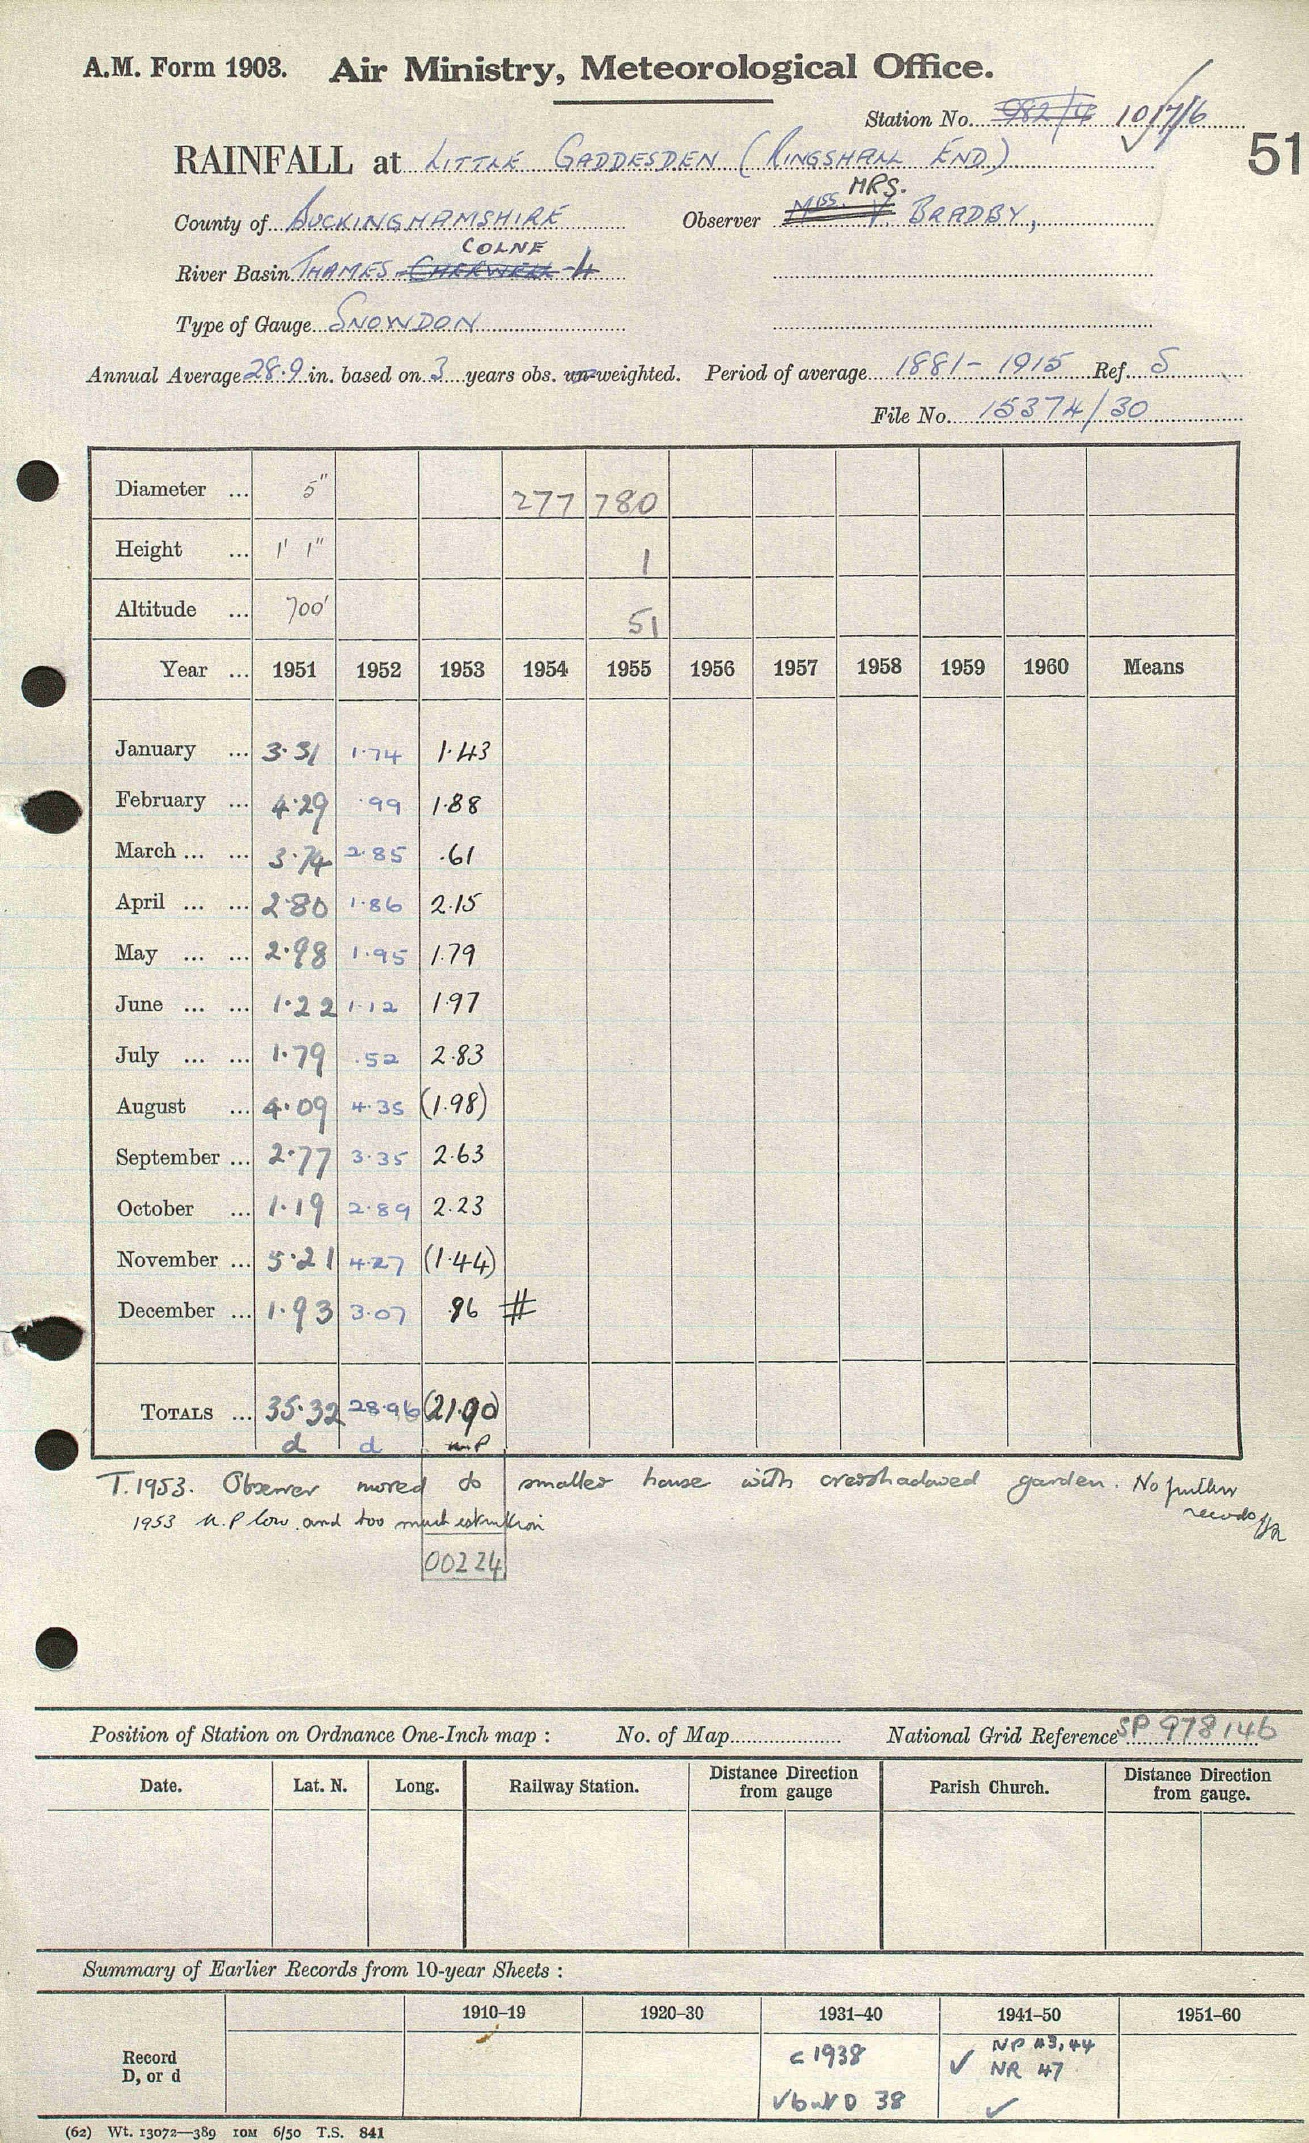 A.M. Form 1903. Air Ministry, Meteorological Office.
Station No. 982/4 1017/6
RAINFALL at LITTLE GADDESDEN (RINGSHALL END) 51
MRS.
County of BUCKINGHAMSHIRE Observer MISS. V. BRADBY,
COLNE
River Basin THAMES - CHERWELL - 4
Type of Gauge SNOWDON
Annual Average 28.9 in. based on 3 years obs. un-weighted. Period of average 1881 - 1915 Ref. 5
File No. 15374/30
Diameter ... 5" 277 780
Height ... 1' 1" 1
Altitude ... 700' 51
Year ... 1951 1952 1953 1954 1955 1956 1957 1958 1959 1960 Means
January ... 3.31 1.74 1.43
February ... 4.29 .99 1.88
March ... ... 3.74 2.85 .61
April ... ... 2.80 1.86 2.15
May ... ... 2.98 1.95 1.79
June ... ... 1.22 1.12 1.97
July ... ... 1.79 .52 2.83
August ... 4.09 4.35 (1.98)
September ... 2.77 3.35 2.63
October ... 1.19 2.89 2.23
November ... 5.21 4.27 (1.44)
December ... 1.93 3.07 .96 #
TOTALS ... 35.32 28.96 (21.90)
d d n.P
T.1953. Observer moved to smaller house with overshadowed garden. No further
records
1953 n.P low and too much estimation
00224
Position of Station on Ordnance One-Inch map : No. of Map National Grid Reference SP 978146
Date. Lat. N. Long. Railway Station. Distance Direction from gauge Parish Church. Distance Direction from gauge.
Summary of Earlier Records from 10-year Sheets :
1910–19 1920–30 1931–40 1941–50 1951–60
Record D, or d c 1938 ✓ NP 43, 44
NR 47
D 38 ✓
(62) Wt. 13072—389 10M 6/50 T.S. 841